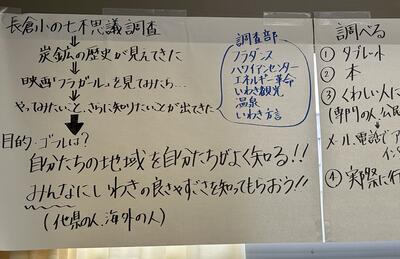 長倉小の七不思議調査
炭鉱の歴史が見えてきた
映画「フラガール」を見てみたら…
やってみたいこと、さらに知りたいことが出てきた
調査部
フラダンス
ハワイアンセンター
エネルギー革命
いわき観光
温泉
いわき方言
目的・ゴールは?
自分たちの地域を自分たちがよく知る!!
みんなにいわきの良さやすごさを知ってもらおう!!
(他県の人、海外の人)
調べる
① タブレット
② 本
③ くわしい人に
(専門の人、公民
メール、電話でア
イン
④ 実際に行